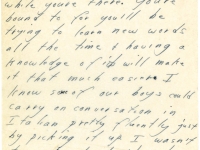 while you're there. You're
bound to for you'll be
trying to learn new words
all the time & having a
knowledge of it will make
it that much easier. I
know some of our boys could
carry on conversation in
Italian pretty fluently just
by picking it up I wasn't